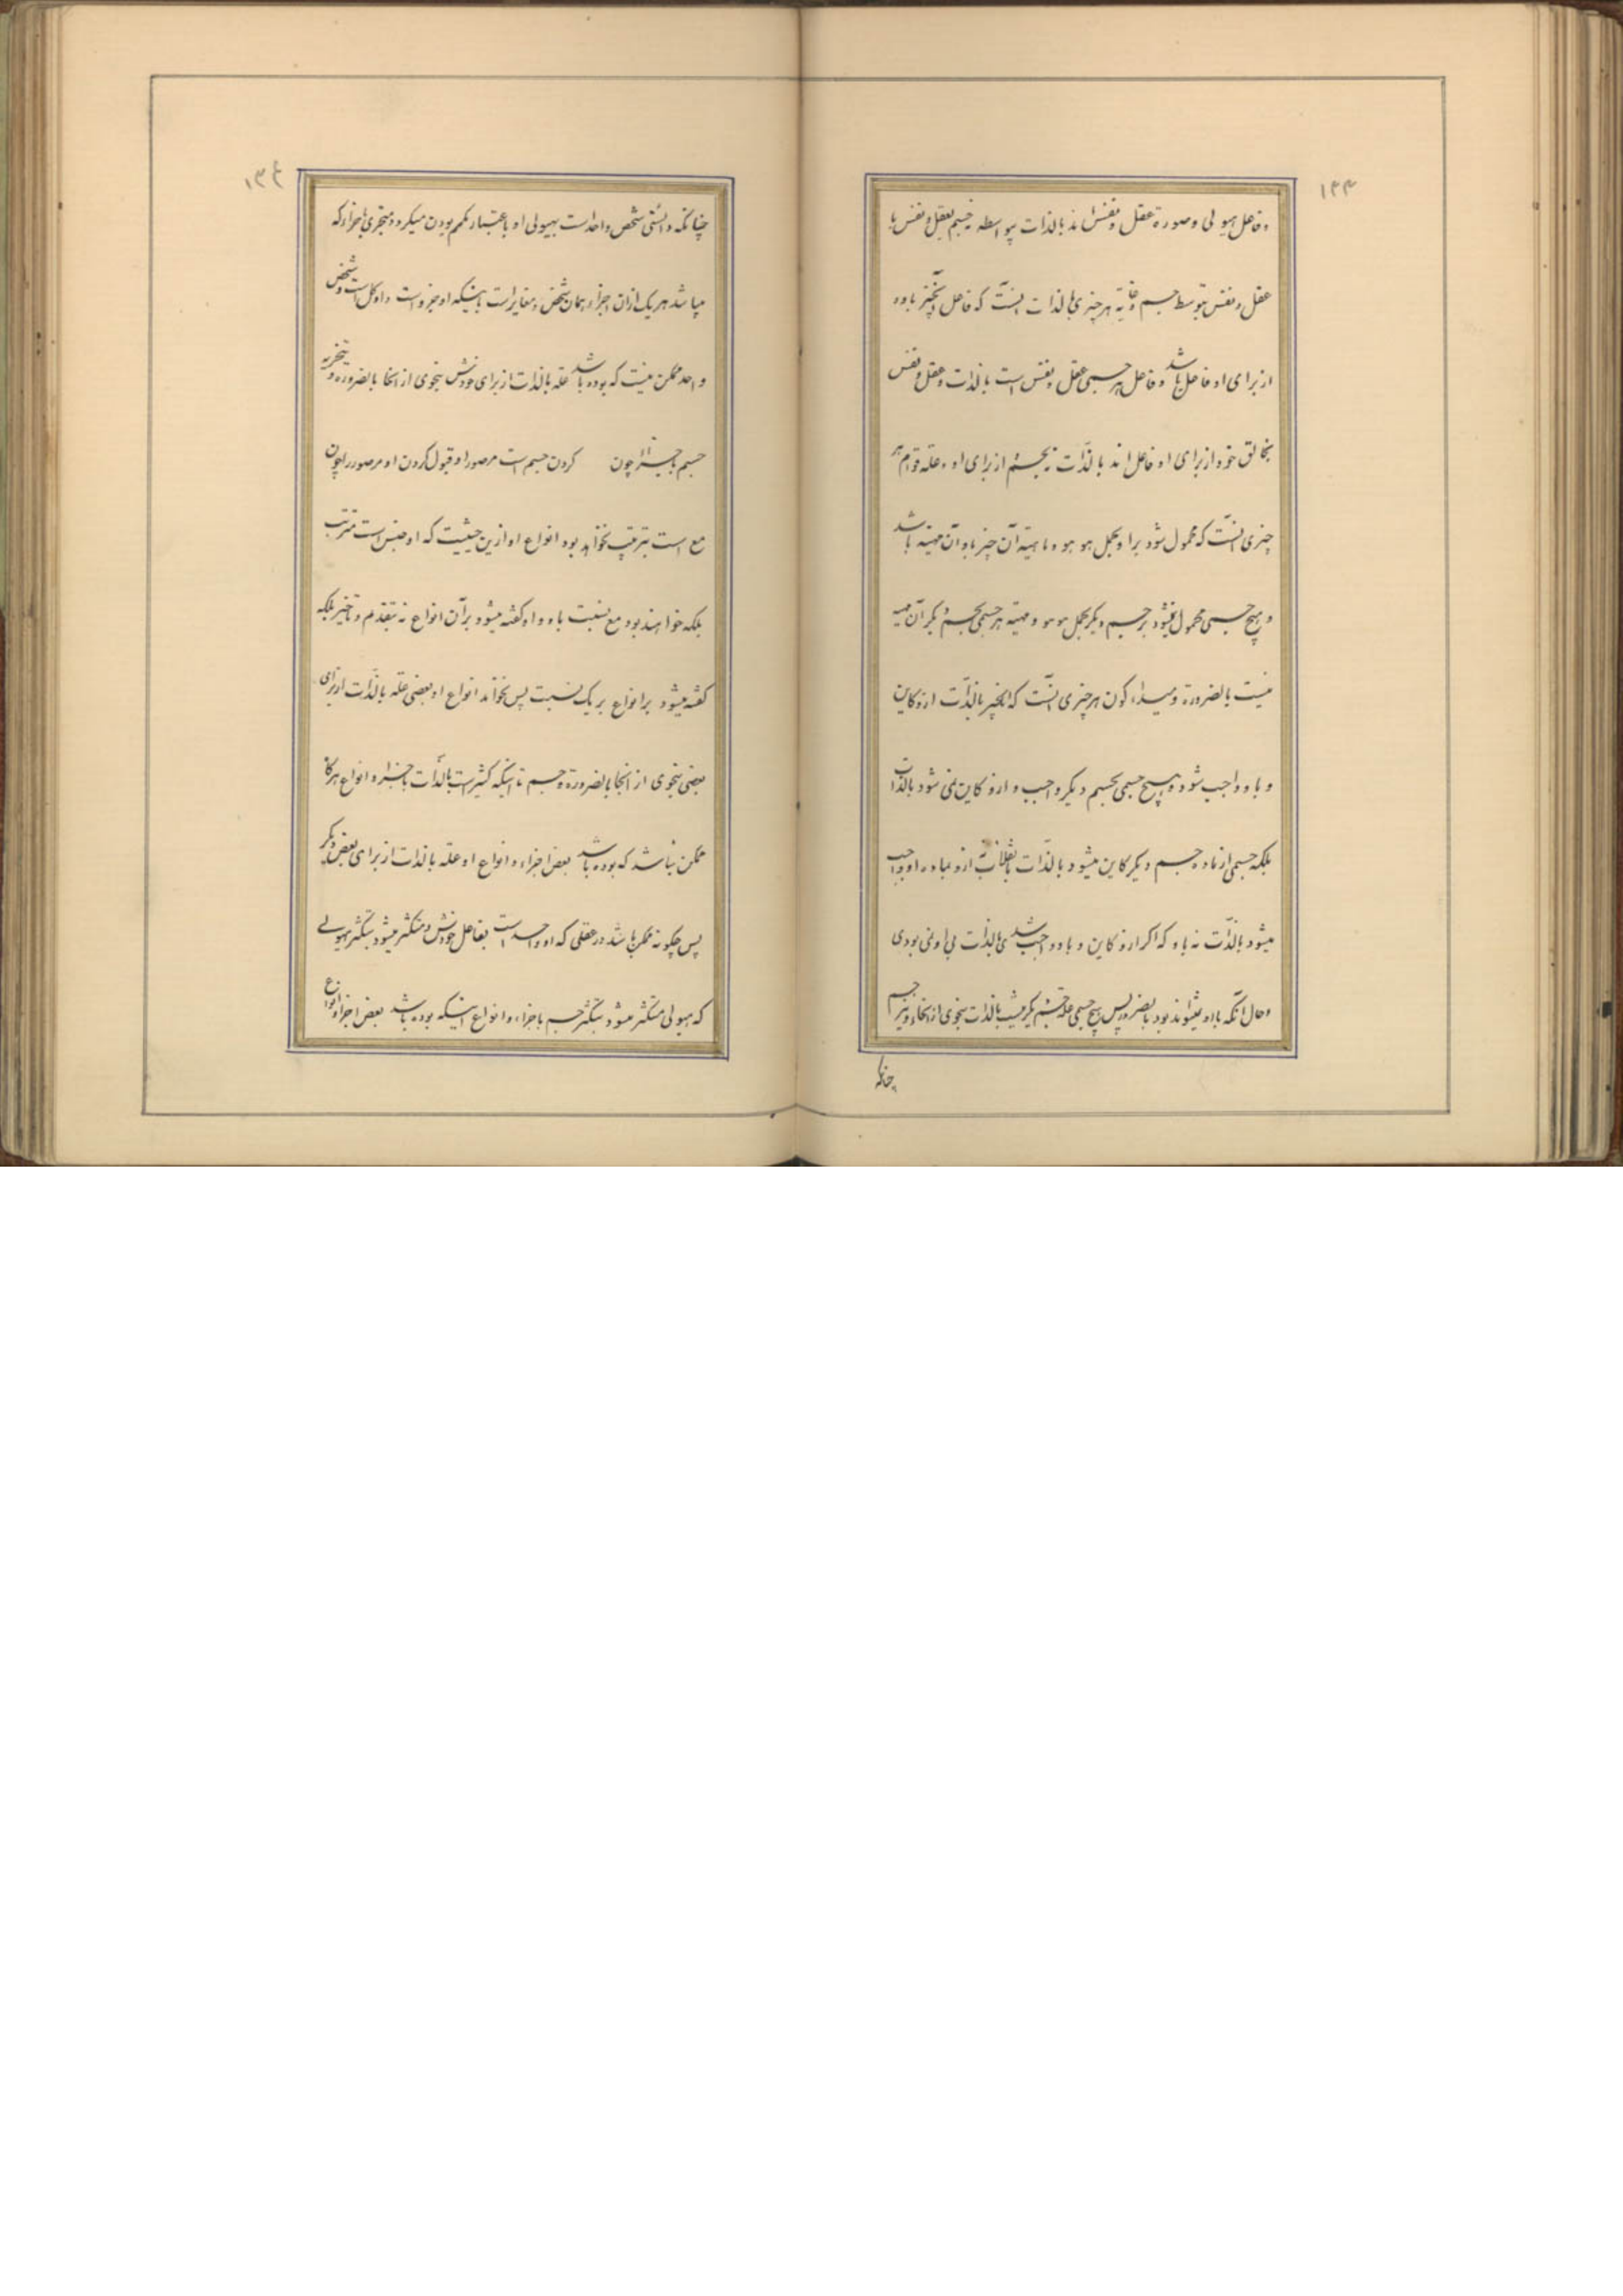 ۱۳۳
وفاعل هیولی وصورة عقل ونفس اند بالذات بواسطه جسم بعقل ونفس یا
عقل ونفس بتوسط جسم وغایة هر چیزی بالذات آنست که فاعل آنچیز باو و
از برای او فاعل باشد وفاعل هر جسمی عقل ونفس است بالذات وعقل ونفس
بخالق خود از برای او فاعل اند بالذات نه بجسم از برای او وعلة قوام هر
چیزی آنست که محمول شود بر او بحمل هو هو وماهیة آن چیز باو آن مهیة باشد
وهیچ جسمی محمول نمیشود بر جسم دیگر بحمل هو هو ومهیة هر جسمی بجسم دیگر آن مهیة
نیست بالضرورة ومبداء کون هر چیزی آنست که آنچیز بالذات ازو کاین
و باو واجب شود وهیچ جسمی بجسم دیگر واجب و ازو کاین نمی شود بالذات
بلکه جسمی از ماده جسم دیگر کاین میشود بالذات ازو بماده او واجب
میشود بالذات نه باو که اگر ازو کاین و باو واجب شدی بالذات بی او نمی بودی
وحال آنکه بی او میتواند بود بالضرورة پس هیچ جسمی علة جسم دیگر نیست بالذات بنحوی از انحاء ونیز جسم
چنانکه
۱۳۴
چنانکه دانستی شخص واحد است بهیولی او باعتبار مکمم بودن میگردد متجزی باجزاء که
میباشد هر یک ازان اجزاء همان شخص ومغایر است باینکه او جزو است و او کل است وشخص
واحد ممکن نیست که بوده باشد علة بالذات از برای خودش بنحوی از انحا بالضرورة وتجزیه
جسم باجزا چون کردن جسم است مر صور او قبول کردن او مر صور را چون
مع است بترتیب نخواهد بود انواع او ازین حیثیت که او جنس است مترتب
بلکه خواهند بود مع نسبت باو و او گفته میشود بر آن انواع نه بتقدم وتأخیر بلکه
گفته میشود بر انواع بر یک نسبت پس نخواند انواع او بعضی علة بالذات از برای
بعضی بنحوی از انحا بالضرورة وجسم با اینکه کثیر است بالذات باجزاء وانواع هرگاه
ممکن نباشد که بوده باشد بعض اجزاء وانواع او علة بالذات از برای بعض دیگر
پس چگونه ممکن باشد در عقلی که او واحد است بفاعل خودش ومتکثر میشود بتکثر هیولی
که هیولی متکثر میشود بتکثر جسم باجزاء وانواع اینکه بوده باشد بعض اجزاء وانواع